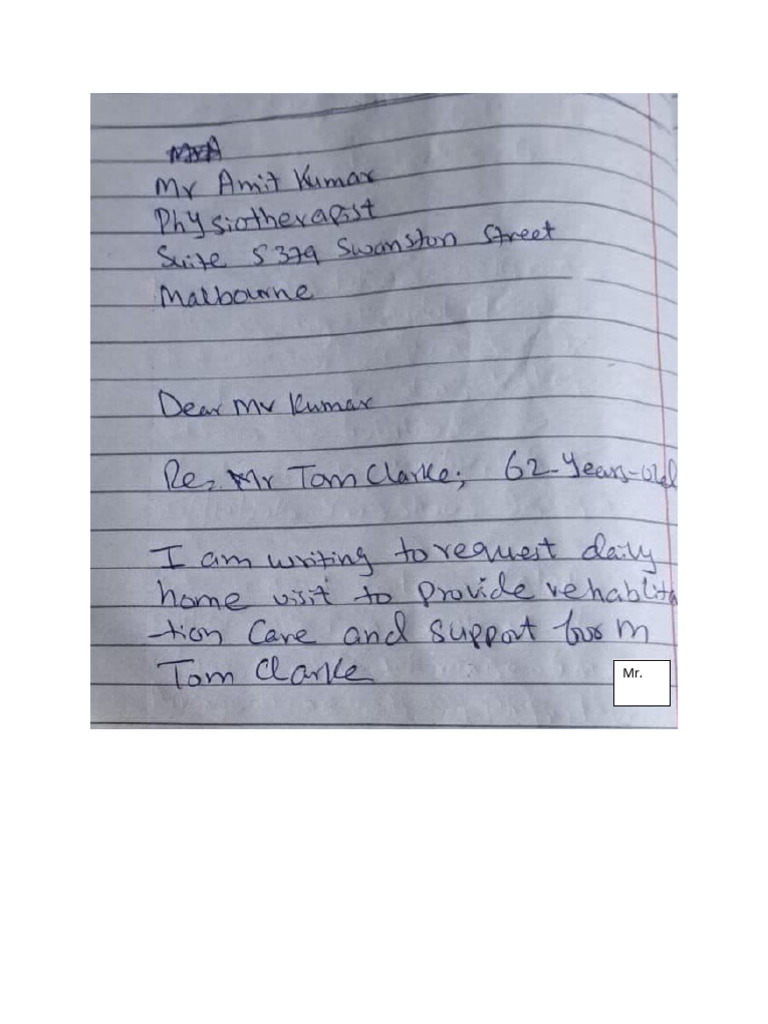 Mr Amit Kumar
Physiotherapist
Suite 5 379 Swanston Street
Malbourne
Dear Mr Kumar
Re: Mr Tom Clarke; 62-Years-old
I am writing to request daily
home visit to provide rehablita
-tion Care and support for M
Tom Clarke
Mr.